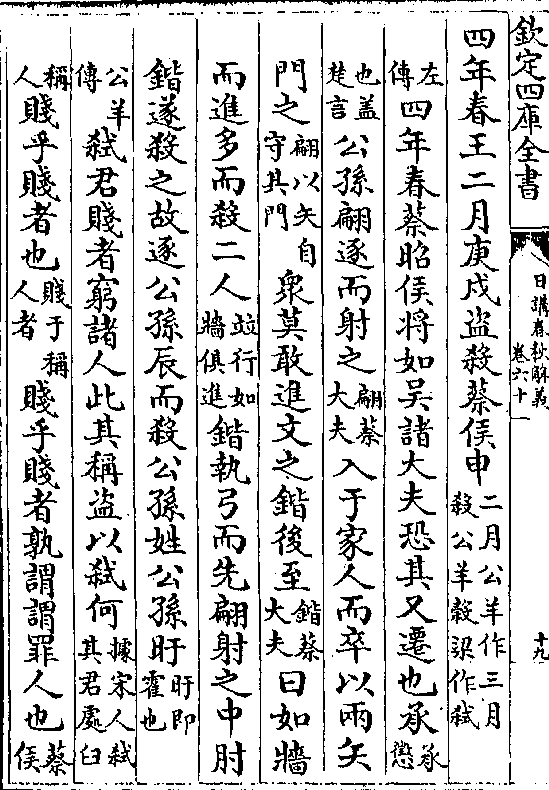 欽定四庫全書
日講春秋解義 卷六十一
十九
四年春王二月庚戌盜殺蔡侯申二月公羊作三月殺公羊榖梁作弒
左傳四年春蔡昭侯將如吳諸大夫恐其又遷也承承懲
也蓋楚言公孫翩逐而射之翩蔡大夫入于家人而卒以兩矢
門之翩以矢自守其門眾莫敢進文之鍇後至鍇蔡大夫曰如牆
而進多而殺二人竝行如牆俱進鍇執弓而先翩射之中肘
鍇遂殺之故逐公孫辰而殺公孫姓公孫盱盱即霍也
公羊傳弒君賤者窮諸人此其稱盜以弒何據宋人弒其君處臼
稱人賤乎賤者也賤于稱人者賤乎賤者孰謂謂罪人也蔡侯